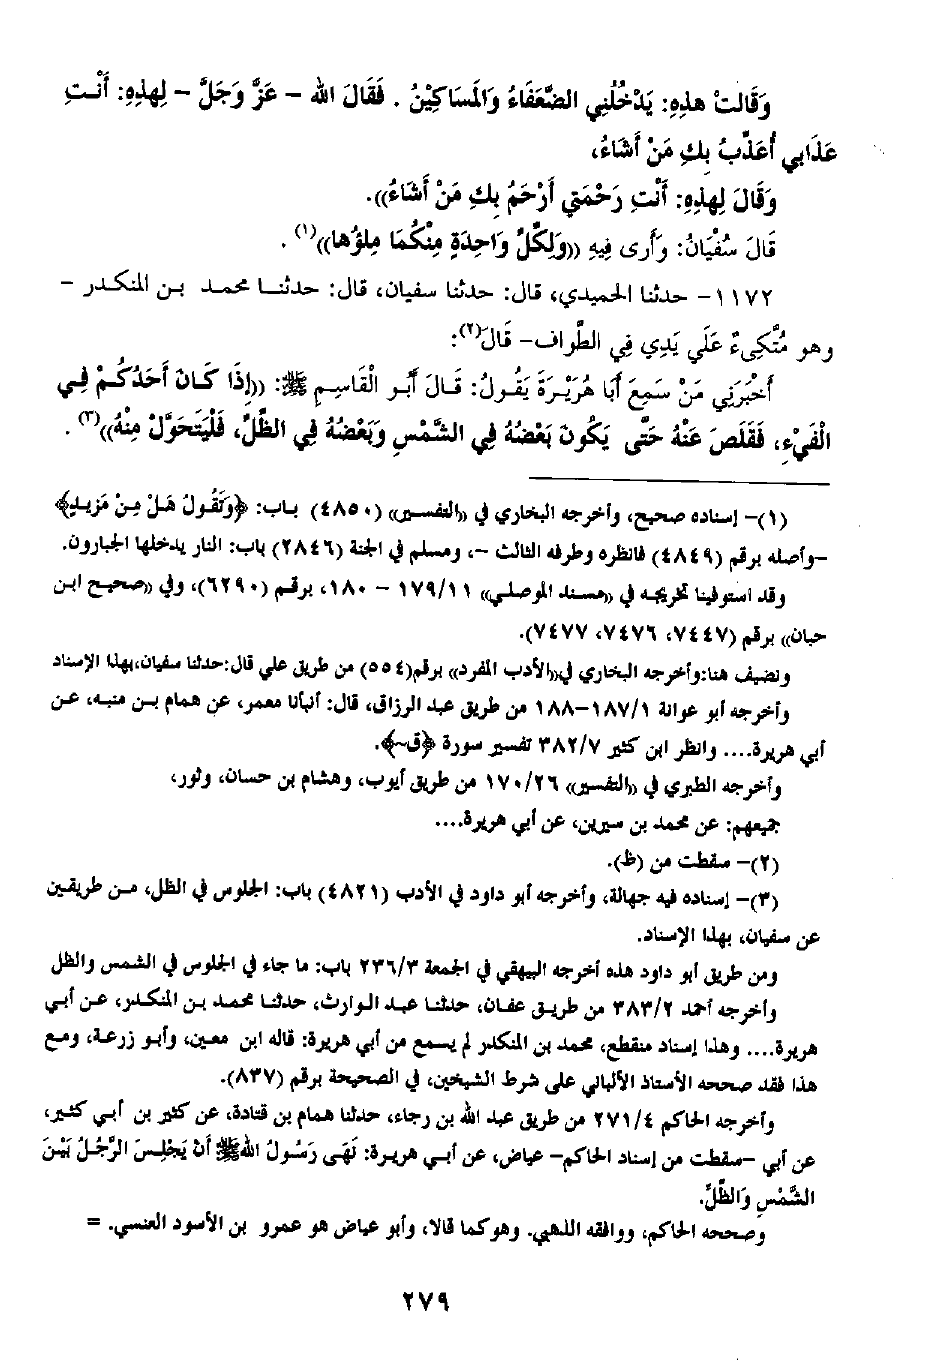 وَقَالَتْ هذِهِ: يَدْخُلُنِي الضُّعَفَاءُ وَالْمَسَاكِيْنُ . فَقَالَ الله – عَزَّ وَجَلَّ – لِهذِهِ: أَنْتِ
عَذَابي أُعَذِّبُ بِكِ مَنْ أَشَاءُ،
وَقَالَ لِهذِهِ: أَنْتِ رَحْمَتِي أَرْحَمُ بِكِ مَنْ أَشَاءُ)).
قَالَ سُفْيَانُ: وَأَرى فِيهِ ((وَلِكُلِّ وَاحِدَةٍ مِنْكُمَا مِلؤُها))(١) .
١١٧٢– حدثنا الحميدي، قال: حدثنا سفيان، قال: حدثنا محمد بن المنكدر –
وهو مُتَّكِىءٌ عَلَى يَدِي فِي الطَّواف– قَالَ(٢):
أَخْبَرَنِي مَنْ سَمِعَ أَبَا هُرَيْرَةَ يَقُولُ: قَالَ أَبو الْقَاسِمِ ﷺ: ((إِذَا كَانَ أَحَدُكُمْ فِي
الْفَيْءِ، فَقَلَصَ عَنْهُ حَتَّى يَكُونَ بَعْضُهُ فِي الشَّمْسِ وَبَعْضُهُ فِي الظِّلِّ، فَلْيَتَحَوَّلْ مِنْهُ))(٣) .
(١)– إسناده صحيح، وأخرجه البخاري في ((التفسير)) (٤٨٥٠) باب: ﴿وَتَقُولُ هَلْ مِنْ مَزِيدٍ﴾
–وأصله برقم (٤٨٤٩) فانظره وطرفه الثالث –، ومسلم في الجنة (٢٨٤٦) باب: النار يدخلها الجبارون.
وقد استوفينا تخريجه في ((مسند الموصلي)) ١٧٩/١١ – ١٨٠، برقم (٦٢٩٠)، وفي ((صحيح ابن
حبان)) برقم (٧٤٤٧، ٧٤٧٦، ٧٤٧٧).
ونضيف هنا:وأخرجه البخاري في((الأدب المفرد)) برقم(٥٥٤) من طريق علي قال:حدثنا سفيان،بهذا الإسناد
وأخرجه أبو عوانة ١٨٧/١–١٨٨ من طريق عبد الرزاق، قال: أنبأنا معمر، عن همام بن منبه، عن
أبي هريرة.... وانظر ابن كثير ٣٨٢/٧ تفسير سورة ﴿ق~﴾.
وأخرجه الطبري في ((التفسير)) ١٧٠/٢٦ من طريق أيوب، وهشام بن حسان، وثور،
جميعهم: عن محمد بن سيرين، عن أبي هريرة....
(٢)– سقطت من (ظ).
(٣)– إسناده فيه جهالة، وأخرجه أبو داود في الأدب (٤٨٢١) باب: الجلوس في الظل، من طريقين
عن سفيان، بهذا الإسناد.
ومن طريق أبو داود هذه أخرجه البيهقي في الجمعة ٢٣٦/٣ باب: ما جاء في الجلوس في الشمس والظل
وأخرجه أحمد ٣٨٣/٢ من طريق عفان، حدثنا عبد الوارث، حدثنا محمد بن المنكدر، عن أبي
هريرة.... وهذا إسناد منقطع، محمد بن المنكدر لم يسمع من أبي هريرة: قاله ابن معين، وأبو زرعة، ومع
هذا فقد صححه الأستاذ الألباني على شرط الشيخين، في الصحيحة برقم (٨٣٧).
وأخرجه الحاكم ٢٧١/٤ من طريق عبد الله بن رجاء، حدثنا همام بن قتادة، عن كثير بن أبي كثير،
عن أبي –سقطت من إسناد الحاكم– عياض، عن أبي هريرة: نَهَى رَسُولُ اللهﷺ أَنْ يَجْلِسَ الرَّجُلُ بَيْنَ
الشَّمْسِ وَالظِّلِّ.
وصححه الحاكم، ووافقه الذهبي. وهو كما قالا، وأبو عياض هو عمرو بن الأسود العنسي. =
٢٧٩